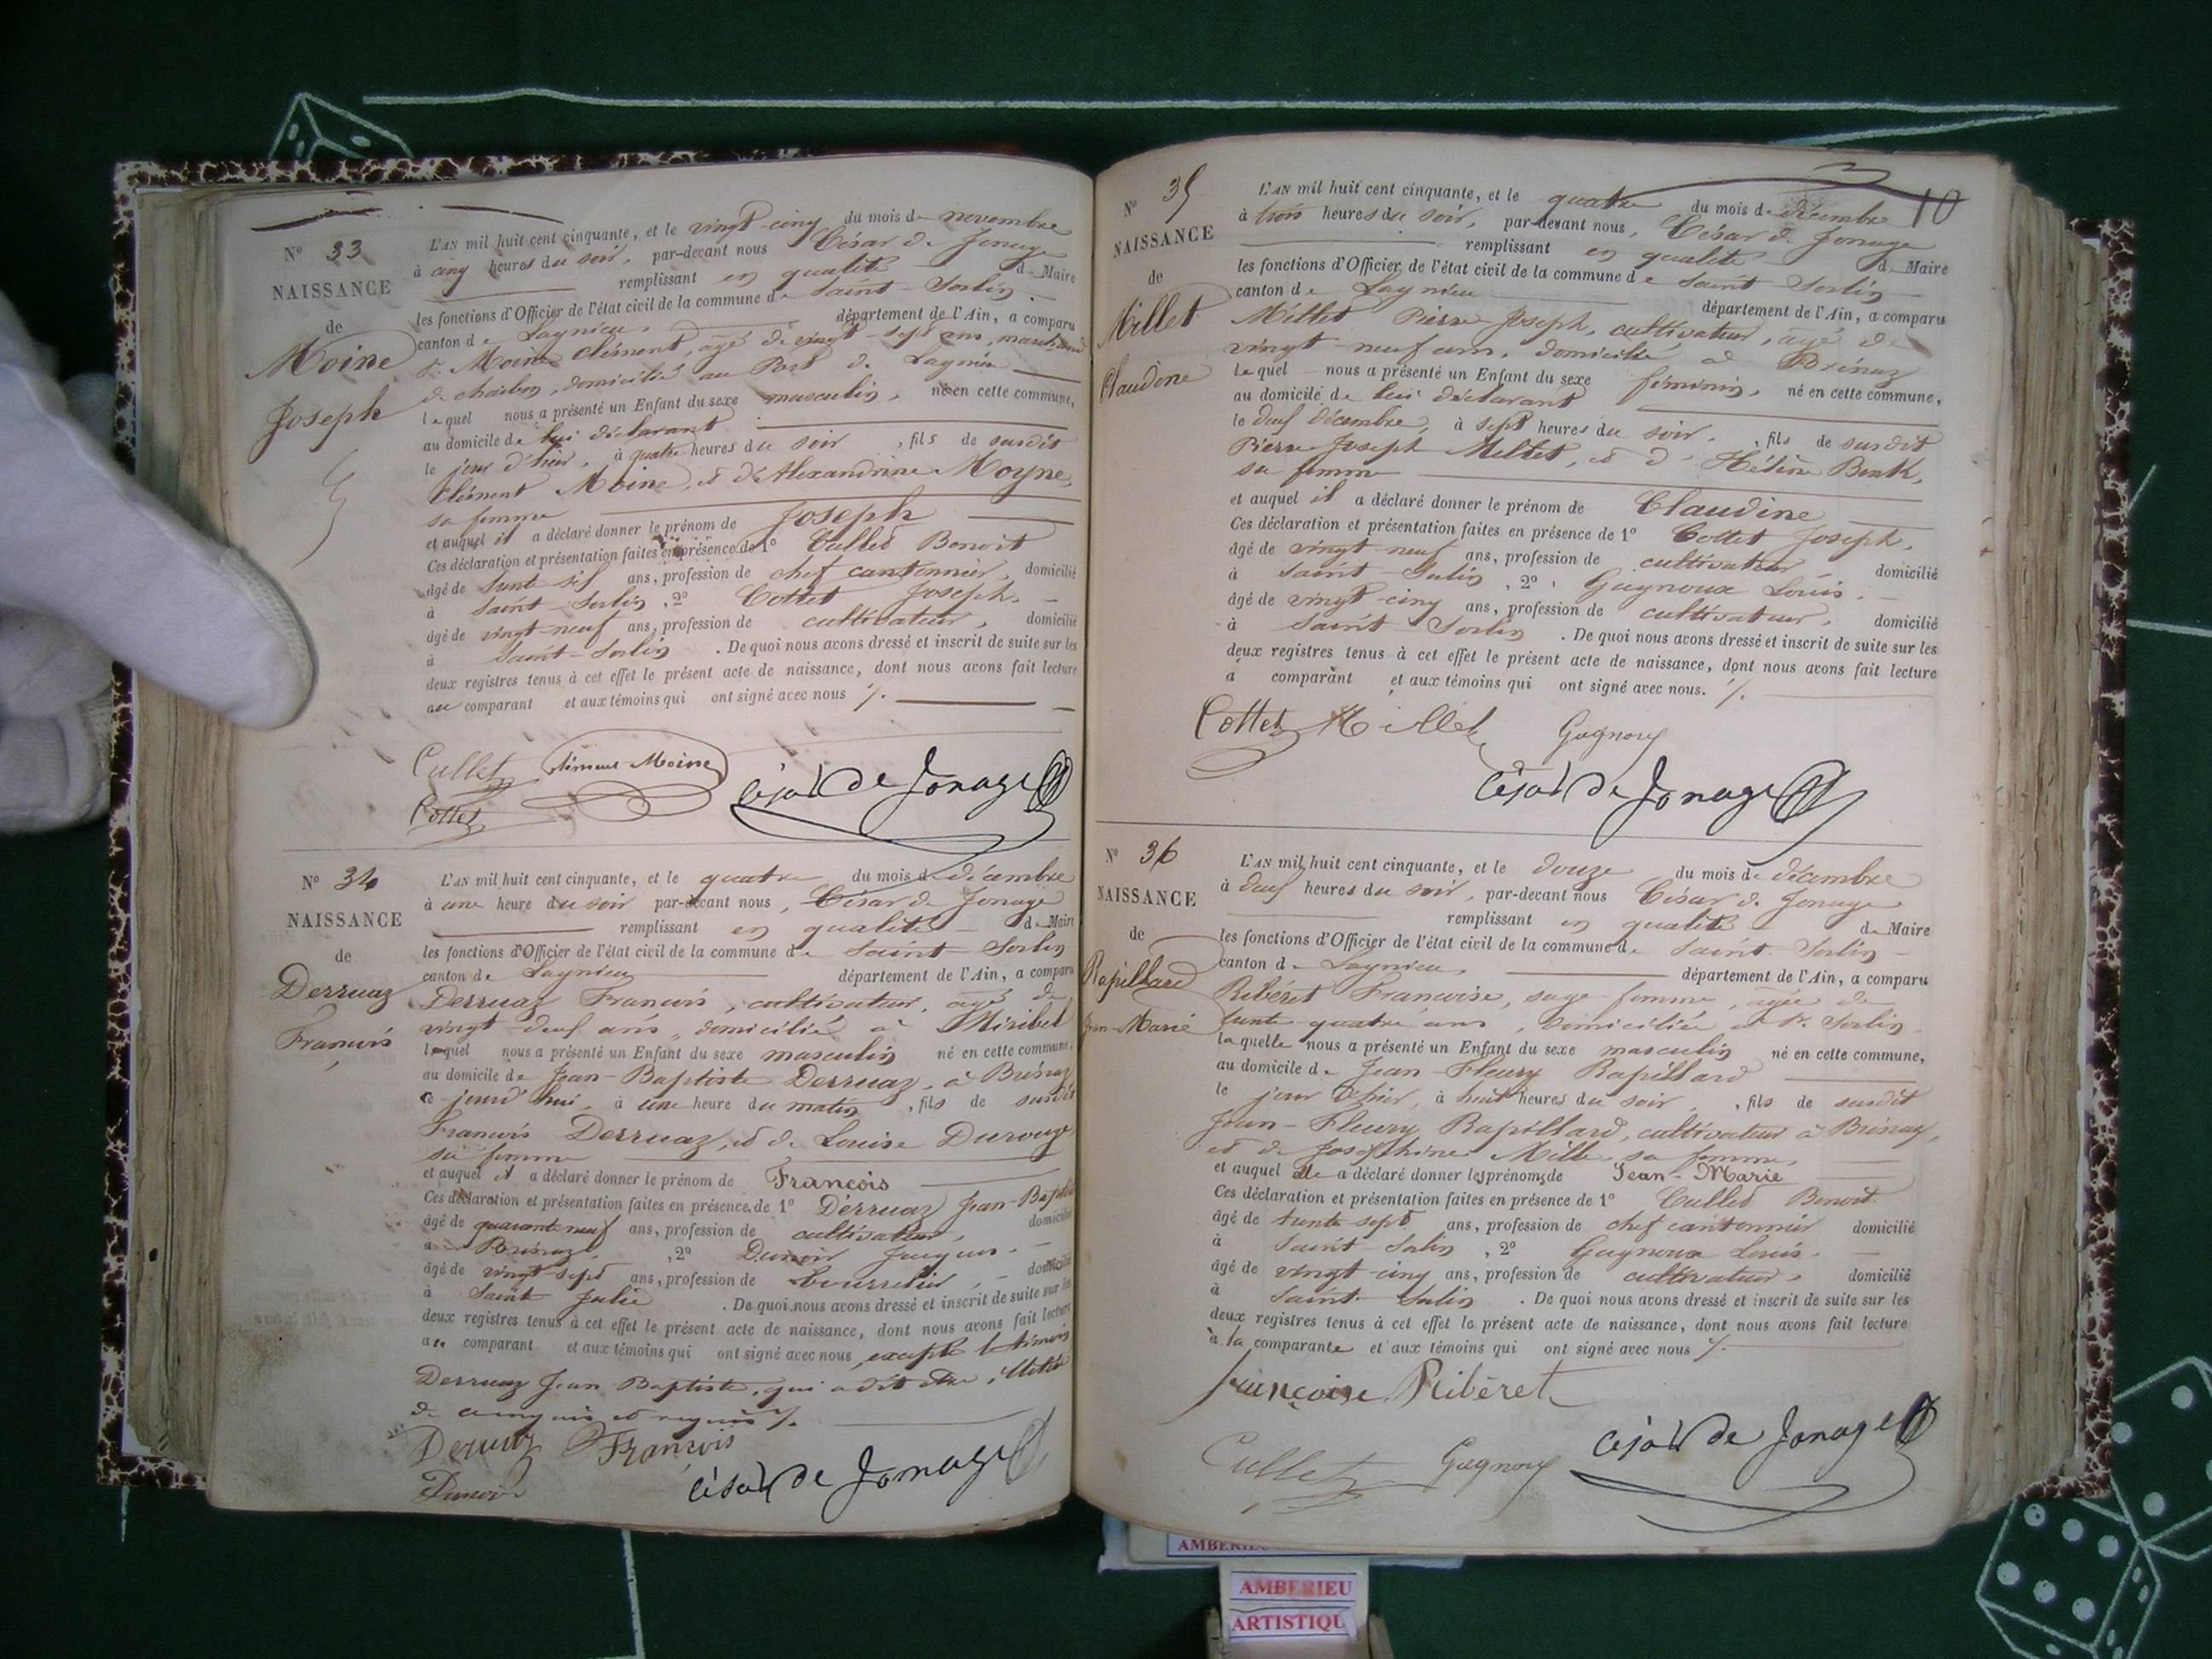 N° 33
NAISSANCE
de
Moine
Joseph
L'AN mil huit cent cinquante, et le vingt-cinq du mois de novembre
à cinq heures du soir, par-devant nous César de Jonage
remplissant en qualité de Maire
les fonctions d'Officier de l'état civil de la commune de Saint-Sorlin
canton de Lagnieu, département de l'Ain, a comparu
Sr Moine Clément, âgé de vingt-sept ans, marchand
de charbon, domicilié au Port de Lagnieu
lequel nous a présenté un Enfant du sexe masculin, né en cette commune,
au domicile de lui déclarant
le jour d'hier, à quatre heures du soir, fils de susdit
Clément Moine, et d'Alexandrine Moyne,
sa femme
et auquel il a déclaré donner le prénom de Joseph
Ces déclaration et présentation faites en présence de 1° Cullet Benoit
âgé de trente six ans, profession de chef cantonnier, domicilié
à Saint-Sorlin, 2° Cottet Joseph,
âgé de vingt-neuf ans, profession de cultivateur, domicilié
à Saint-Sorlin. De quoi nous avons dressé et inscrit de suite sur les
deux registres tenus à cet effet le présent acte de naissance, dont nous avons fait lecture
au comparant et aux témoins qui ont signé avec nous
Cullet Clément Moine César de Jonage
Cottet
N° 34
NAISSANCE
de
Derruaz
François
L'AN mil huit cent cinquante, et le quatre du mois de décembre
à une heure du soir par-devant nous, César de Jonage
remplissant en qualité de Maire
les fonctions d'Officier de l'état civil de la commune de Saint-Sorlin
canton de Lagnieu département de l'Ain, a comparu
Derruaz François, cultivateur, âgé de
vingt-deux ans, domicilié à Miribel
lequel nous a présenté un Enfant du sexe masculin né en cette commune,
au domicile de Jean-Baptiste Derruaz, à Brénaz
ce jourd'hui, à une heure du matin, fils de susdit
François Derruaz, et de Louise Durouge
sa femme
et auquel il a déclaré donner le prénom de François
Ces déclaration et présentation faites en présence de 1° Derruaz Jean-Baptiste
âgé de quarante-neuf ans, profession de cultivateur, domicilié
à Brénaz, 2° Dunoir Jacques
âgé de vingt-sept ans, profession de bourrelier, domicilié
à Saint Julie. De quoi nous avons dressé et inscrit de suite sur les
deux registres tenus à cet effet le présent acte de naissance, dont nous avons fait lecture
au comparant et aux témoins qui ont signé avec nous excepté le témoin
Derruaz Jean-Baptiste, qui a dit être illettré
de ce enquis et requis
Derruaz François
Dunoir César de Jonage
10
N° 35
NAISSANCE
de
Millet
Claudine
L'AN mil huit cent cinquante, et le quatre du mois de décembre
à trois heures du soir, par-devant nous, César de Jonage
remplissant en qualité de Maire
les fonctions d'Officier de l'état civil de la commune de Saint Sorlin
canton de Lagnieu département de l'Ain, a comparu
Millet Pierre Joseph, cultivateur, âgé de
vingt-neuf ans, domicilié à Brénaz
lequel nous a présenté un Enfant du sexe féminin, né en cette commune,
au domicile de lui déclarant
le deux décembre, à sept heures du soir, fils de susdit
Pierre Joseph Millet, et d'Hélène
sa femme
et auquel il a déclaré donner le prénom de Claudine
Ces déclaration et présentation faites en présence de 1° Cottet Joseph,
âgé de vingt-neuf ans, profession de cultivateur domicilié
à Saint-Sorlin, 2° Gagnoux Louis.
âgé de vingt-cinq ans, profession de cultivateur, domicilié
à Saint-Sorlin. De quoi nous avons dressé et inscrit de suite sur les
deux registres tenus à cet effet le présent acte de naissance, dont nous avons fait lecture
à comparant et aux témoins qui ont signé avec nous.
Cottet Millet Gagnoux
César de Jonage
N° 36
NAISSANCE
de
Rapillard
Jean-Marie
L'AN mil huit cent cinquante, et le douze du mois de décembre
à deux heures du soir, par-devant nous César de Jonage
remplissant en qualité de Maire
les fonctions d'Officier de l'état civil de la commune de Saint Sorlin
canton de Lagnieu, département de l'Ain, a comparu
Ribéret Françoise, sage femme, âgée de
trente quatre ans, domiciliée à St. Sorlin
laquelle nous a présenté un Enfant du sexe masculin né en cette commune,
au domicile de Jean-Fleury Rapillard
le jour d'hier, à huit heures du soir, fils de susdit
Jean-Fleury Rapillard, cultivateur à Brénaz,
et de Joséphine Millet sa femme,
et auquel elle a déclaré donner les prénoms de Jean-Marie
Ces déclaration et présentation faites en présence de 1° Cullet Benoit
âgé de trente-sept ans, profession de chef cantonnier domicilié
à Saint-Sorlin, 2° Gagnoux Louis.
âgé de vingt-cinq ans, profession de cultivateur, domicilié
à Saint-Sorlin. De quoi nous avons dressé et inscrit de suite sur les
deux registres tenus à cet effet le présent acte de naissance, dont nous avons fait lecture
à la comparante et aux témoins qui ont signé avec nous
Françoise Ribèret
César de Jonage
Cullet Gagnoux
AMBERIEU
AMBERIEU
ARTISTIQU